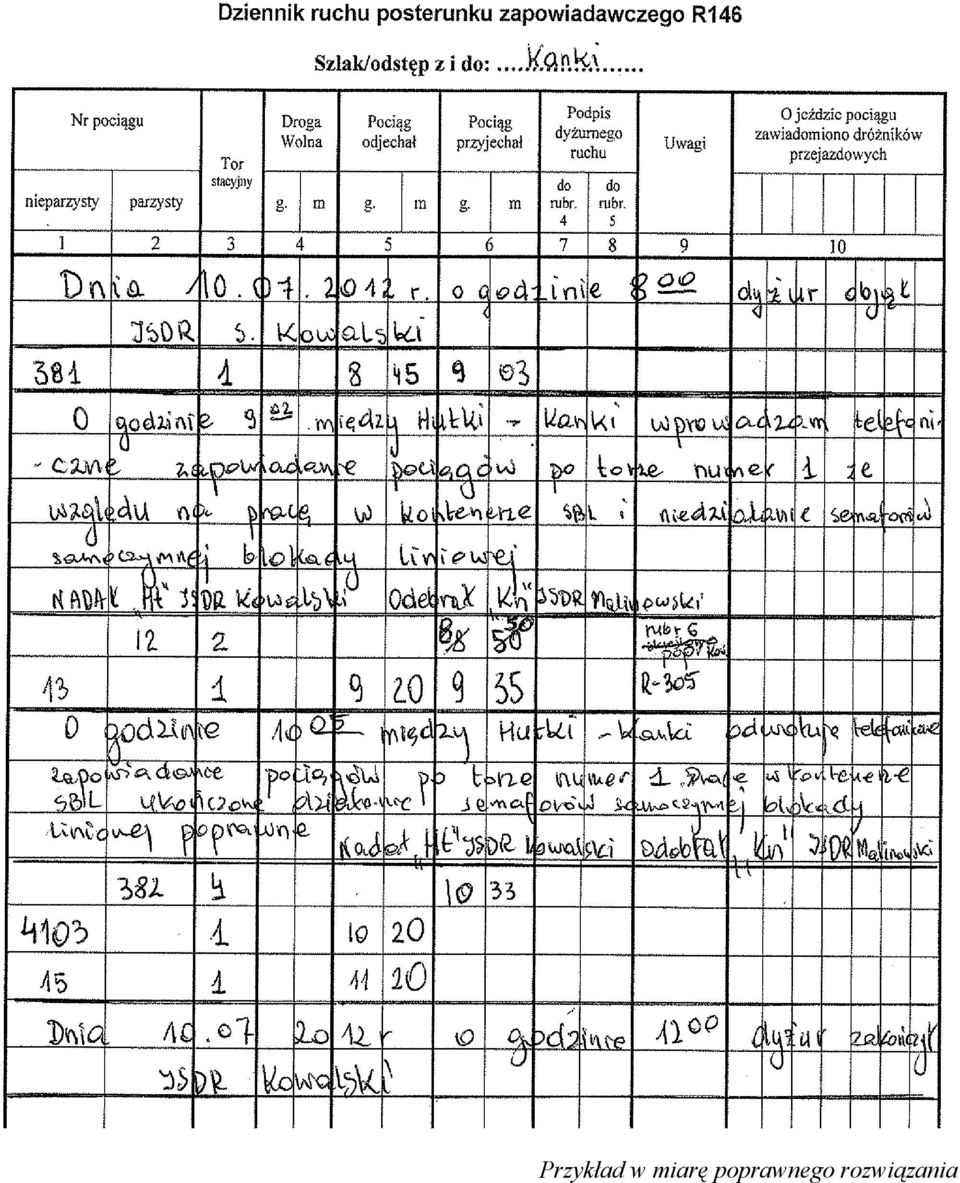 Dziennik ruchu posterunku zapowiadawczego R146
Szlak/odstęp z i do: ....Kanki......
Nr pociągu
Tor stacyjny
Droga Wolna
Pociąg odjechał
Pociąg przyjechał
Podpis dyżurnego ruchu
Uwagi
O jeździe pociągu zawiadomiono dróżników przejazdowych
nieparzysty parzysty g. m g. m g. m do rubr. 4 do rubr. 5
1 2 3 4 5 6 7 8 9 10
Dnia 10.07.2012 r. o godzinie 8 00 dyżur objął
ISDR S. Kowalski
381 1 8 45 9 03
O godzinie 9 02 między Hutki - Kanki wprowadzam telefoni-
- czne zapowiadanie pociągów po torze numer 1 ze
względu na pracę w kontenerze SBL i niedziałanie semaforów
samoczynnej blokady liniowej
NADAŁ „Ht" ISDR Kowalski Odebrał „Kn" ISDR Malinowski
12 2 8 50 rubr 6 popr Kow
13 1 9 20 9 35 R-305
O godzinie 10 05 między Hutki - Kanki odwołuję telefoniczne
zapowiadanie pociągów po torze numer 1. Prace w kontenerze
SBL ukończone działanie semaforów samoczynnej blokady
liniowej poprawne Nadał „Ht" ISDR Kowalski Odebrał „Kn" ISDR Malinowski
382 4 10 33
4103 1 10 20
15 1 11 20
Dnia 10.07 2012 r o godzinie 12 00 dyżur zakończył
ISDR Kowalski
Przykład w miarę poprawnego rozwiązania